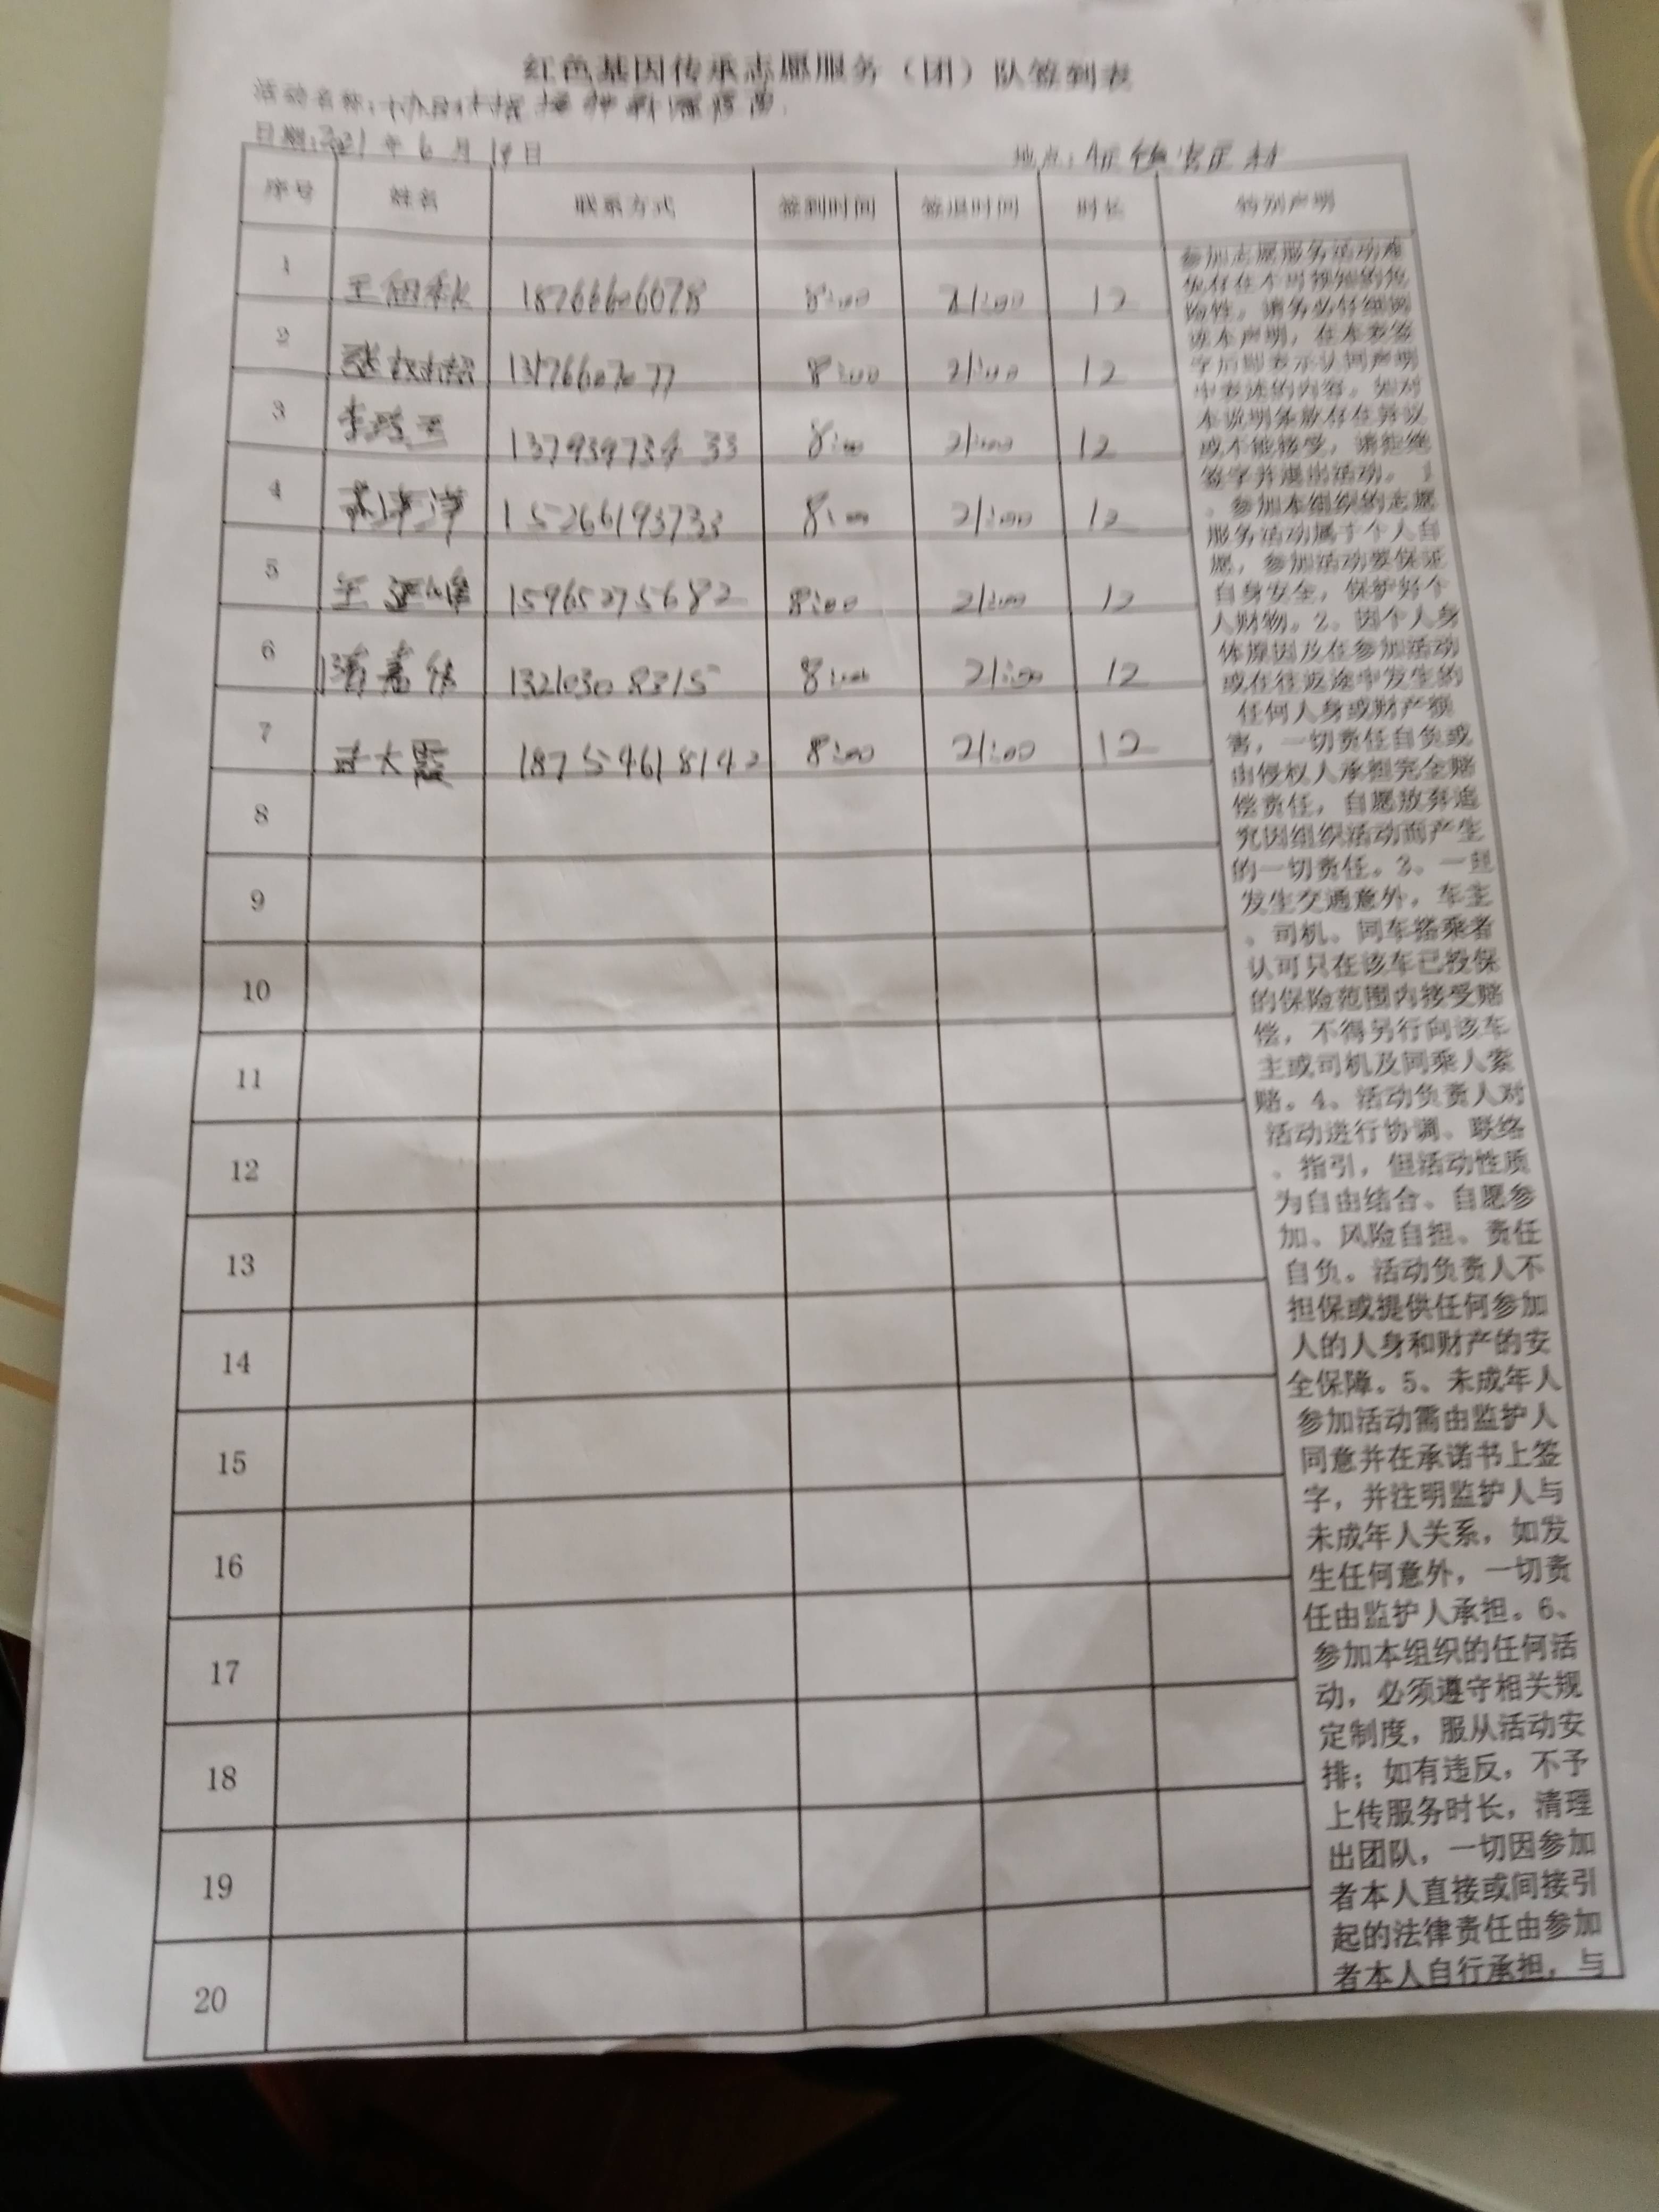 红色基因传承志愿服务（团）队签到表
活动名称：接种新冠疫苗
日期：2021年6月18日
地点：
序号 姓名 联系方式 签到时间 签退时间 时长 特别声明
1 18766606078 8:00 21:00 12
2 13176607077 8:00 21:00 12
3 13793973433 8:00 21:00 12
4 15266193733 8:00 21:00 12
5 15965275682 8:00 21:00 12
6 13210308315 8:00 21:00 12
7 18754618142 8:00 21:00 12
8
9
10
11
12
13
14
15
16
17
18
19
20
参加志愿服务活动难
免存在不可预知的危
险性，请务必仔细阅
读本声明，在本表签
字后即表示认同声明
中表述的内容。如对
本说明条款存在异议
或不能接受，请拒绝
签字并退出活动。1
、参加本组织的志愿
服务活动属于个人自
愿，参加活动要保证
自身安全，保护好个
人财物。2、因个人身
体原因及在参加活动
或在往返途中发生的
任何人身或财产损
害，一切责任自负或
由侵权人承担完全赔
偿责任，自愿放弃追
究因组织活动而产生
的一切责任。3、一旦
发生交通意外，车主
、司机、同车搭乘者
认可只在该车已投保
的保险范围内接受赔
偿，不得另行向该车
主或司机及同乘人索
赔。4、活动负责人对
活动进行协调、联络
、指引，但活动性质
为自由结合、自愿参
加、风险自担、责任
自负。活动负责人不
担保或提供任何参加
人的人身和财产的安
全保障。5、未成年人
参加活动需由监护人
同意并在承诺书上签
字，并注明监护人与
未成年人关系，如发
生任何意外，一切责
任由监护人承担。6、
参加本组织的任何活
动，必须遵守相关规
定制度，服从活动安
排；如有违反，不予
上传服务时长，清理
出团队，一切因参加
者本人直接或间接引
起的法律责任由参加
者本人自行承担，与